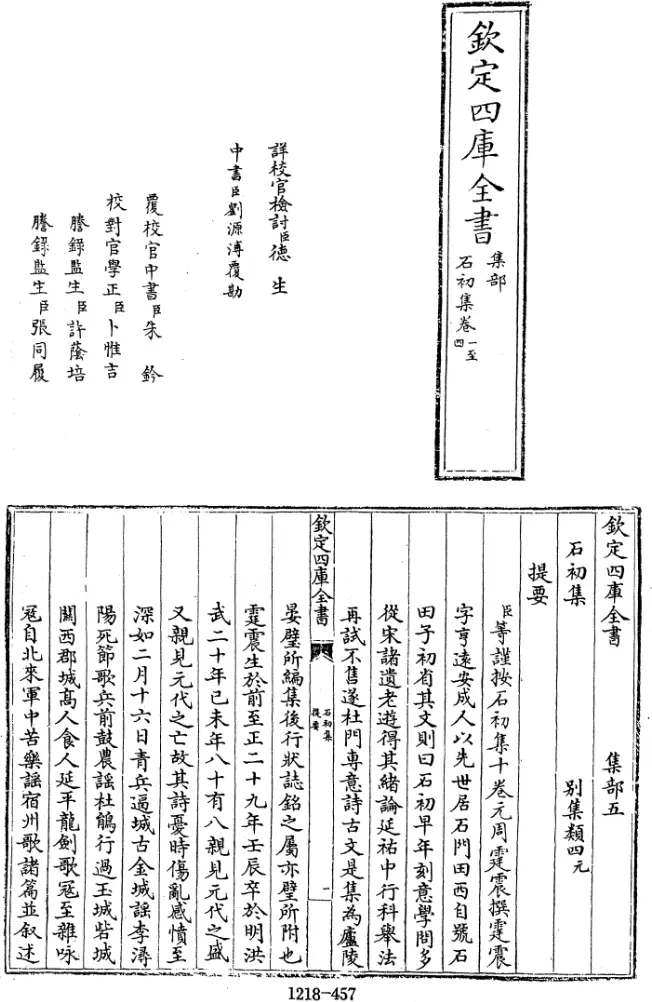 欽定四庫全書
集部
石初集卷一至四
詳校官檢討臣德生
中書臣劉源溥覆勘
覆校官中書臣朱鈐
校對官學正臣卜惟吉
謄錄監生臣許蔭培
謄錄監生臣張同履
欽定四庫全書 集部五
石初集 別集類四元
提要
臣等謹按石初集十卷元周霆震撰霆震
字亨遠安成人以先世居石門田西自號石
田子初省其文則曰石初早年刻意學問多
從宋諸遺老遊得其緒論延祐中行科舉法
再試不售遂杜門專意詩古文是集為廬陵
欽定四庫全書 石初集提要 一
晏璧所編集後行狀誌銘之屬亦璧所附也
霆震生於前至正二十九年壬辰卒於明洪
武二十年已未年八十有八親見元代之盛
又親見元代之亡故其詩憂時傷亂感憤至
深如二月十六日青兵逼城古金城謠李潯
陽死節歌兵前鼓農謠杜鵑行過玉城砦城
關西郡城高人食人延平龍劍歌冦至雜咏
冦自北來軍中苦樂謠宿州歌諸篇並叙述
1218-457